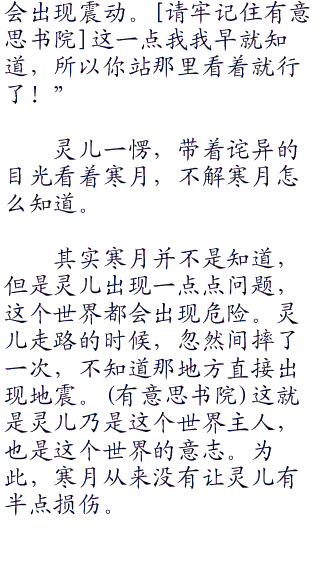 会出现震动。[请牢记住有意
思书院]这一点我我早就知
道，所以你站那里看着就行
了！”
灵儿一愣，带着诧异的
目光看着寒月，不解寒月怎
么知道。
其实寒月并不是知道，
但是灵儿出现一点点问题，
这个世界都会出现危险。灵
儿走路的时候，忽然间摔了
一次，不知道那地方直接出
现地震。(有意思书院)这就
是灵儿乃是这个世界主人，
也是这个世界的意志。为
此，寒月从来没有让灵儿有
半点损伤。